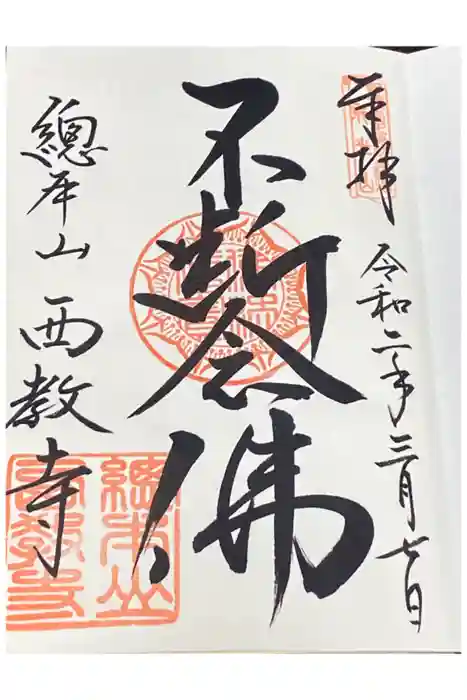 奉拝
令和二年三月七日
不断念佛
總本山西教寺
總本山
西教寺